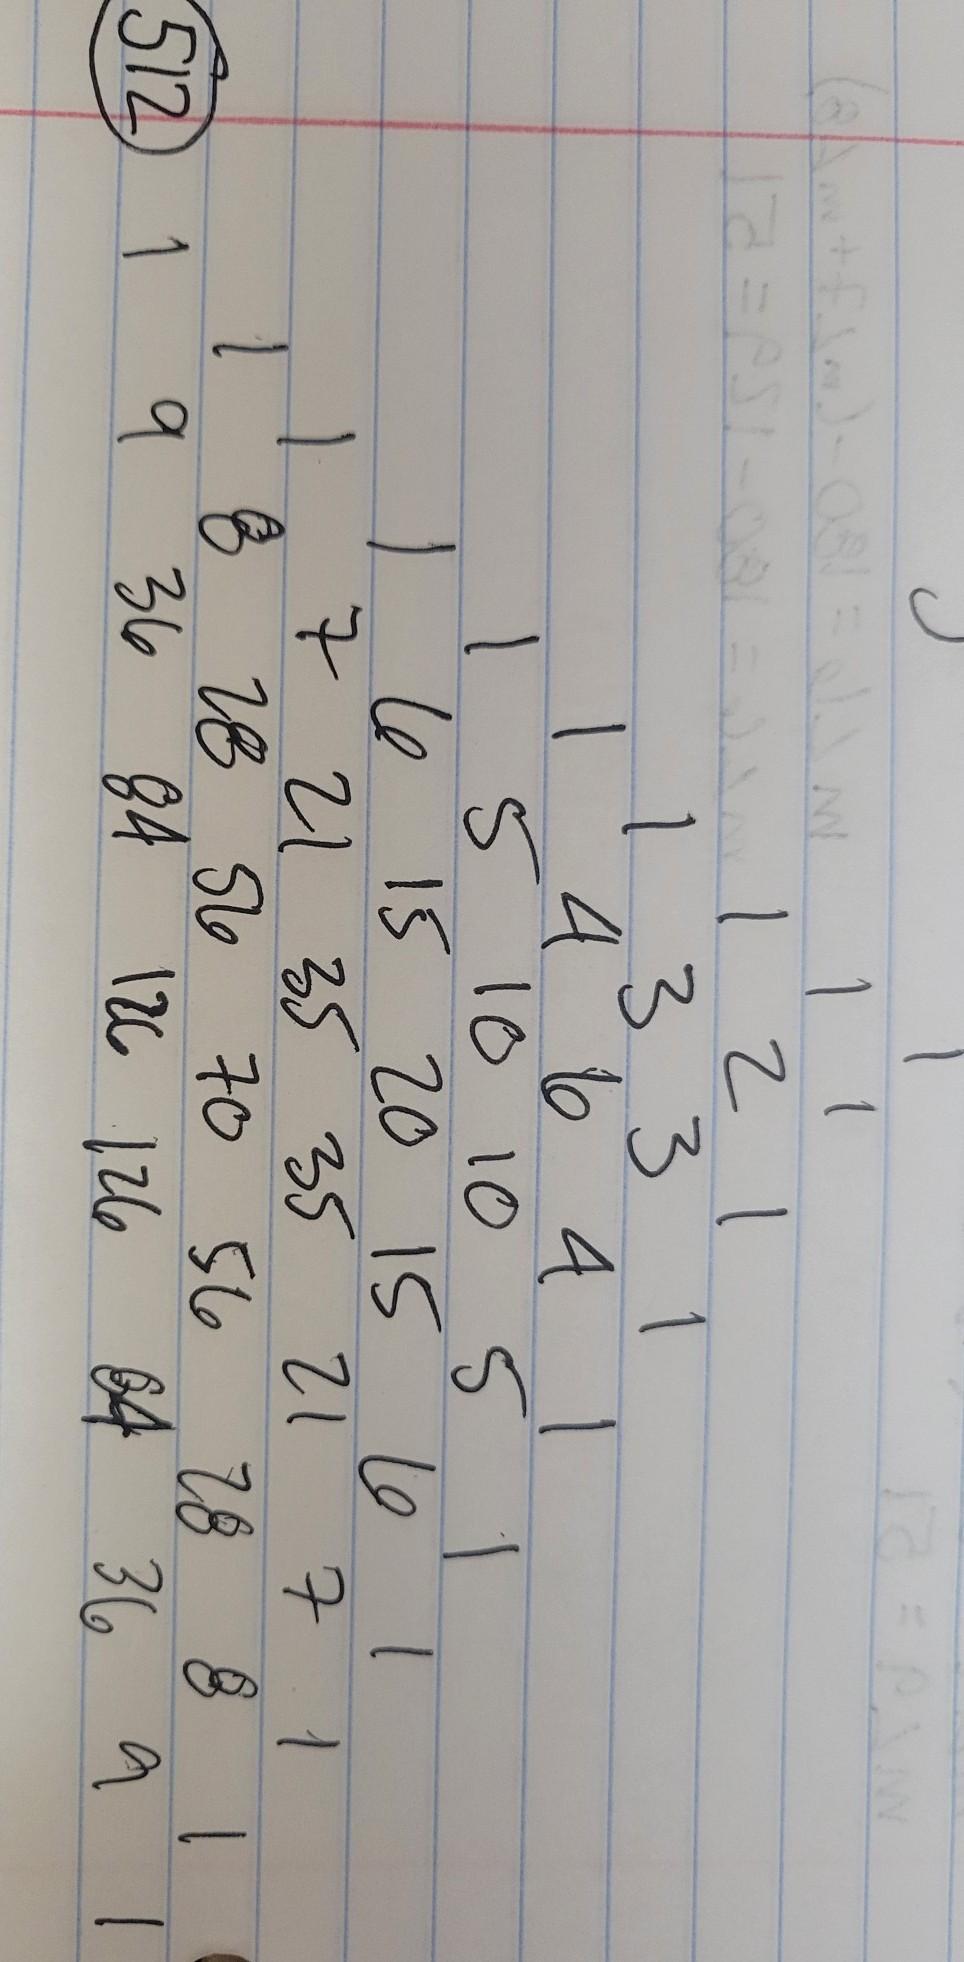 1
1 1
1 2 1
1 3 3 1
1 4 6 4 1
1 5 10 10 5 1
1 6 15 20 15 6 1
1 7 21 35 35 21 7 1
1 8 28 56 70 56 28 8 1
512 1 9 36 84 126 126 84 36 9 1